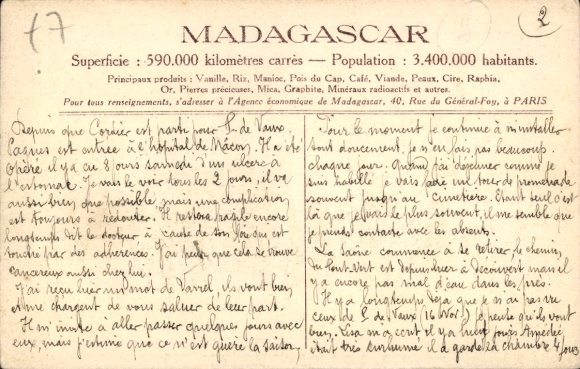 7
2
MADAGASCAR
Superficie : 590.000 kilomètres carrés — Population : 3.400.000 habitants.
Principaux produits : Vanille, Riz, Manioc, Pois du Cap, Café, Viande, Peaux, Cire, Raphia,
Or, Pierres précieuses, Mica, Graphite, Minéraux radioactifs et autres.
Pour tous renseignements, s'adresser à l'Agence économique de Madagascar, 40, Rue du Général-Foy, à PARIS
Depuis que Cordier est parti pour S. de Vaux,
Pagnes est entrée à l'hôpital de Mâcon. Il a été
Opéré il y a eu 8 jours samedi d'un ulcère à
l'estomac. Je vais le voir tous les 2 jours, il va
aussi bien que possible mais une complication
est toujours à redouter. Il restera faible encore
longtemps dit le docteur à cause de son foie qui est
touché par des adhérences. J'ai peur que cela se trouve
cancéreux aussi chez lui.
J'ai reçu hier un mot de ils vont bien
et me chargent de vous saluer de leur part.
Il m'invite à aller passer quelques jours avec
eux, mais j'estime que ce n'est guère la saison,
Pour le moment je continue à m'installer
tout doucement, je n'en fais pas beaucoup
chaque jour. Quand j'ai déjeuner comme je
suis habillé je vais faire un tour de promenade
souvent jusqu'au cimetière. Étant seul c'est
là que je vais le plus souvent, il me semble que
je prends contacte avec les absents.
La Saône commence à se retirer, le chemin
du Pont-Vert est depuis hier à découvert mais il
y a encore pas mal d'eau dans les prés.
Il y a longtemps déjà que je n'ai pas vu
ceux de S. de Vaux (16 Nov.) je pense qu'ils vont
bien. Lisa m'a écrit il y a huit jours Amédée
était très enrhumé il a gardé la chambre 4 jours